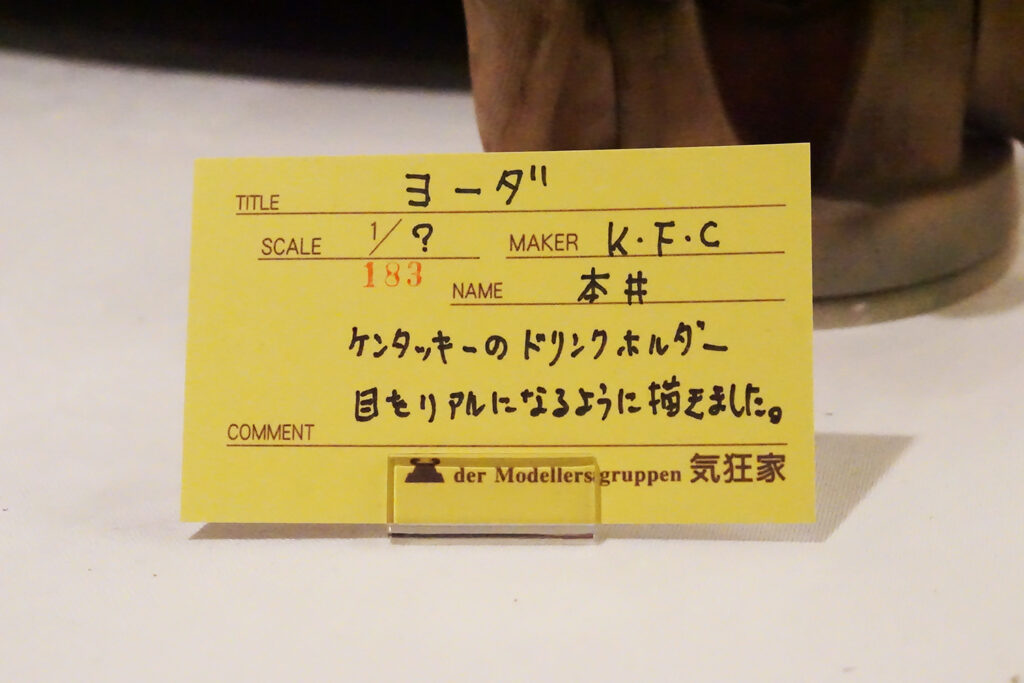 TITLE ヨーダ
SCALE 1/? MAKER K・F・C
183
NAME 本井
ケンタッキーのドリンクホルダー
目をリアルになるように描きました。
COMMENT
der Modellers gruppen 気狂家